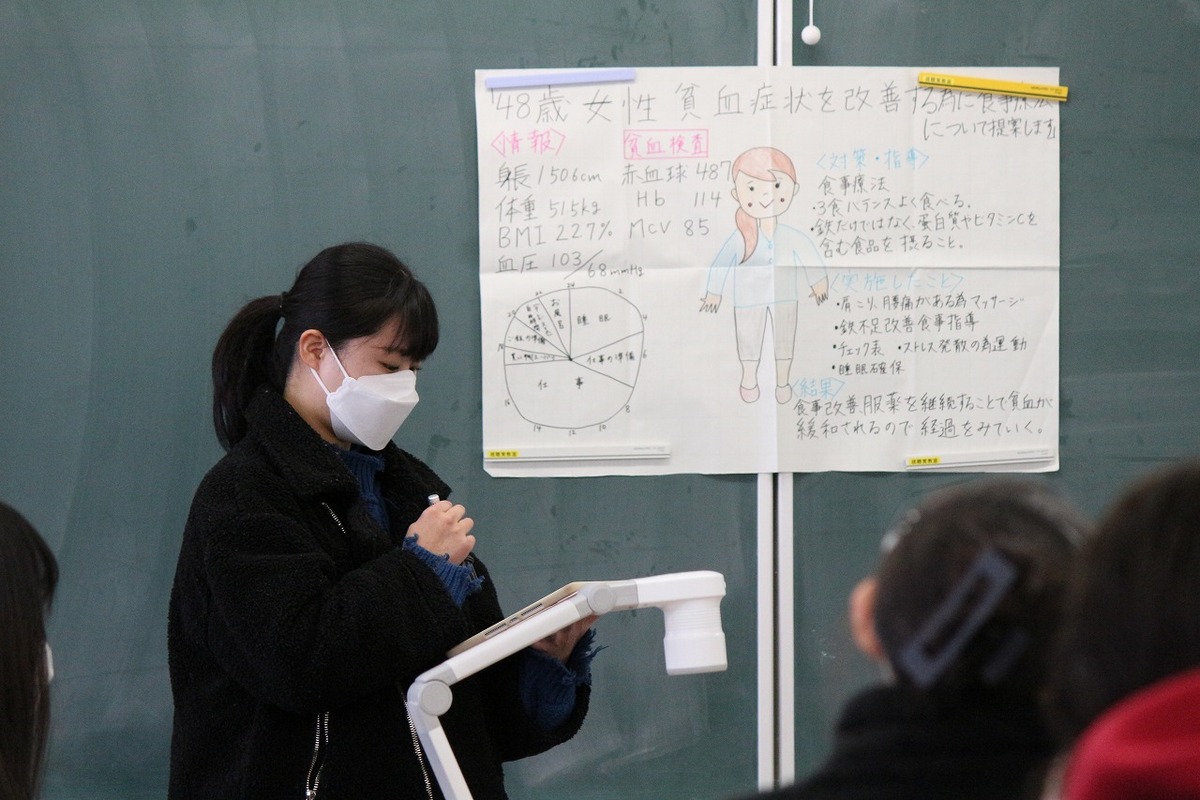 「48歳 女性 貧血症状を改善する為に食事療法
について提案します」
〈情報〉
身長 150.6cm
体重 51.5kg
BMI 22.7%
血圧 103/68mmHg
貧血検査
赤血球 487
Hb 114
MCV 85
24
2
4
6
8
10
12
14
16
18
20
お風呂
睡眠
仕事の準備
仕事
〈対策・指導〉
食事療法
・3食バランスよく食べる。
・鉄だけではなく、蛋白質やビタミンCを
含む食品を摂ること。
〈実施したこと〉
・肩こり、腰痛がある為マッサージ
・鉄不足改善食事指導
・チェック表 ・ストレス発散の為運動
・睡眠確保
〈結果〉
食事改善、服薬を継続することで貧血が
緩和されるので経過をみていく。